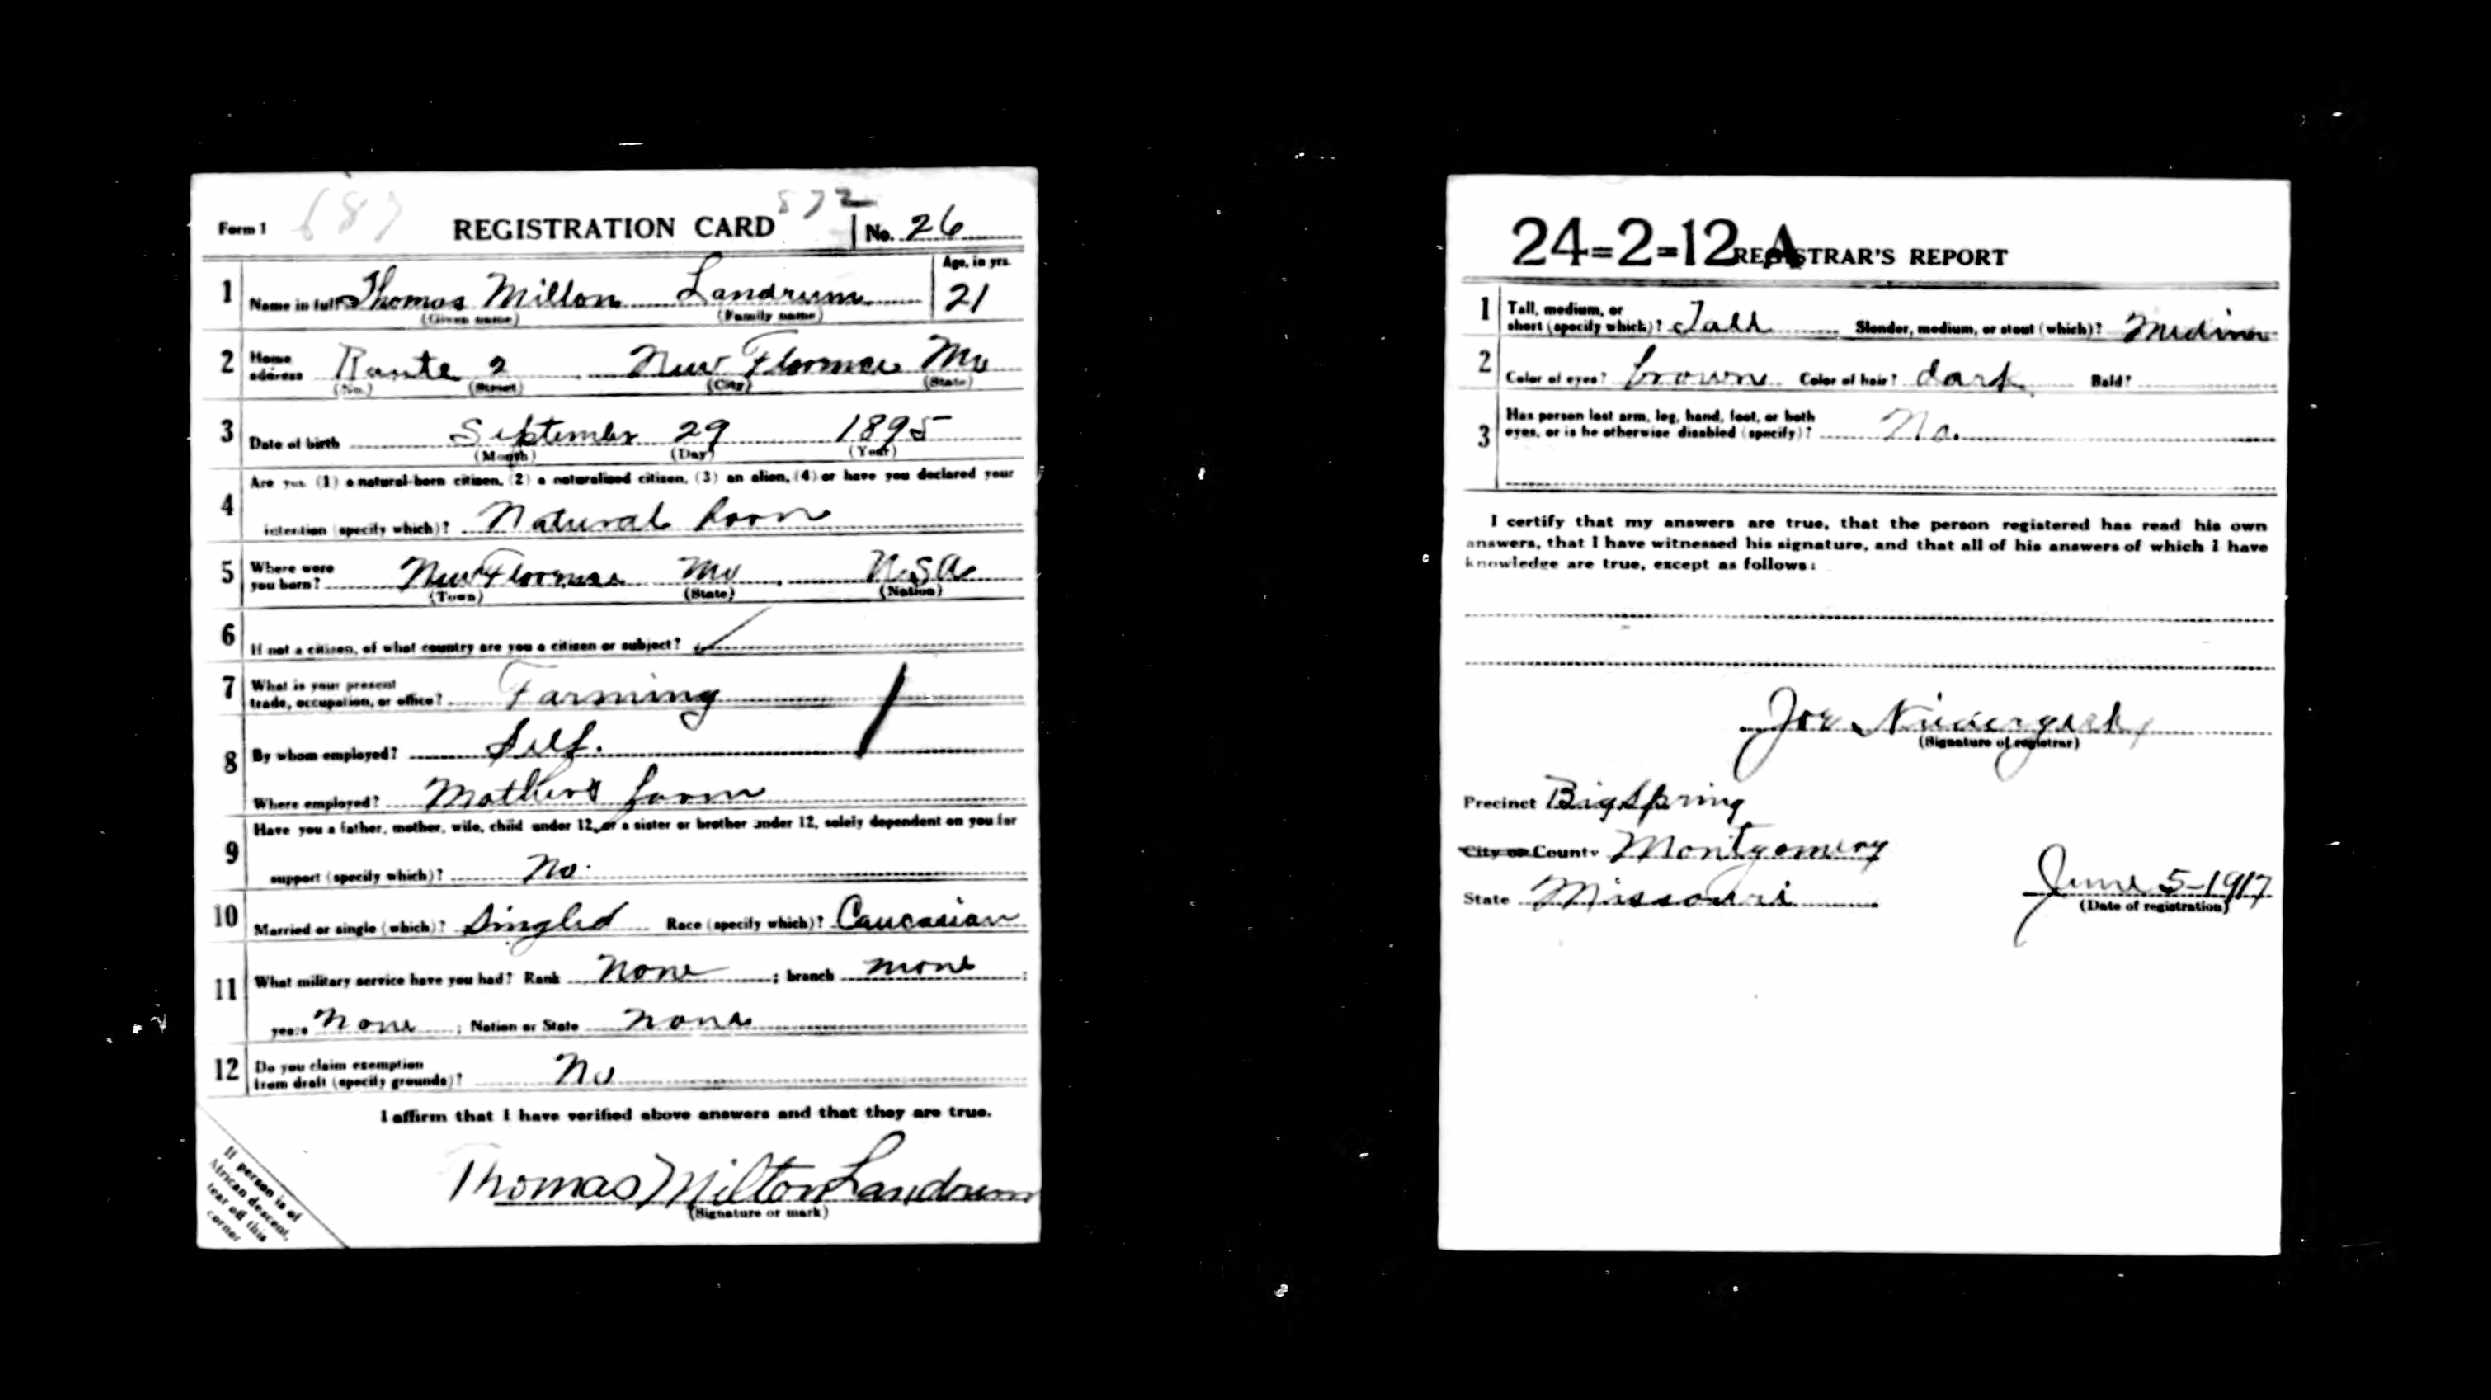 Form 1 687 REGISTRATION CARD 572 No. 26
1 Name in full Thomas Milton Landrum Age, in yrs. 21
(Given name) (Family name)
2 Home address Route 2 New Florence Mo
(No.) (Street) (City) (State)
3 Date of birth September 29 1895
(Month) (Day) (Year)
Are you (1) a natural-born citizen, (2) a naturalized citizen, (3) an alien, (4) or have you declared your
4 intention (specify which)? Natural born
5 Where were you born? New Florence Mo USA
(Town) (State) (Nation)
6 If not a citizen, of what country are you a citizen or subject?
7 What is your present trade, occupation, or office? Farming
8 By whom employed? Self.
Where employed? Mothers farm
Have you a father, mother, wife, child under 12, or a sister or brother under 12, solely dependent on you for
9 support (specify which)? No.
10 Married or single (which)? Singled Race (specify which)? Caucasian
11 What military service have you had? Rank None ; branch none ;
years None ; Nation or State None
12 Do you claim exemption from draft (specify grounds)? No
I affirm that I have verified above answers and that they are true.
Thomas Milton Landrum
(Signature or mark)
If person is of
African descent,
tear off this
corner
24=2=12 A REGISTRAR'S REPORT
1 Tall, medium, or short (specify which)? Tall Slender, medium, or stout (which)? Medium
2 Color of eyes? brown Color of hair? dark Bald?
3 Has person lost arm, leg, hand, foot, or both eyes, or is he otherwise disabled (specify)? No.
I certify that my answers are true, that the person registered has read his own
answers, that I have witnessed his signature, and that all of his answers of which I have
knowledge are true, except as follows:
Joe
(Signature of registrar)
Precinct Big Spring
City or County Montgomery
State Missouri June 5-1917
(Date of registration)